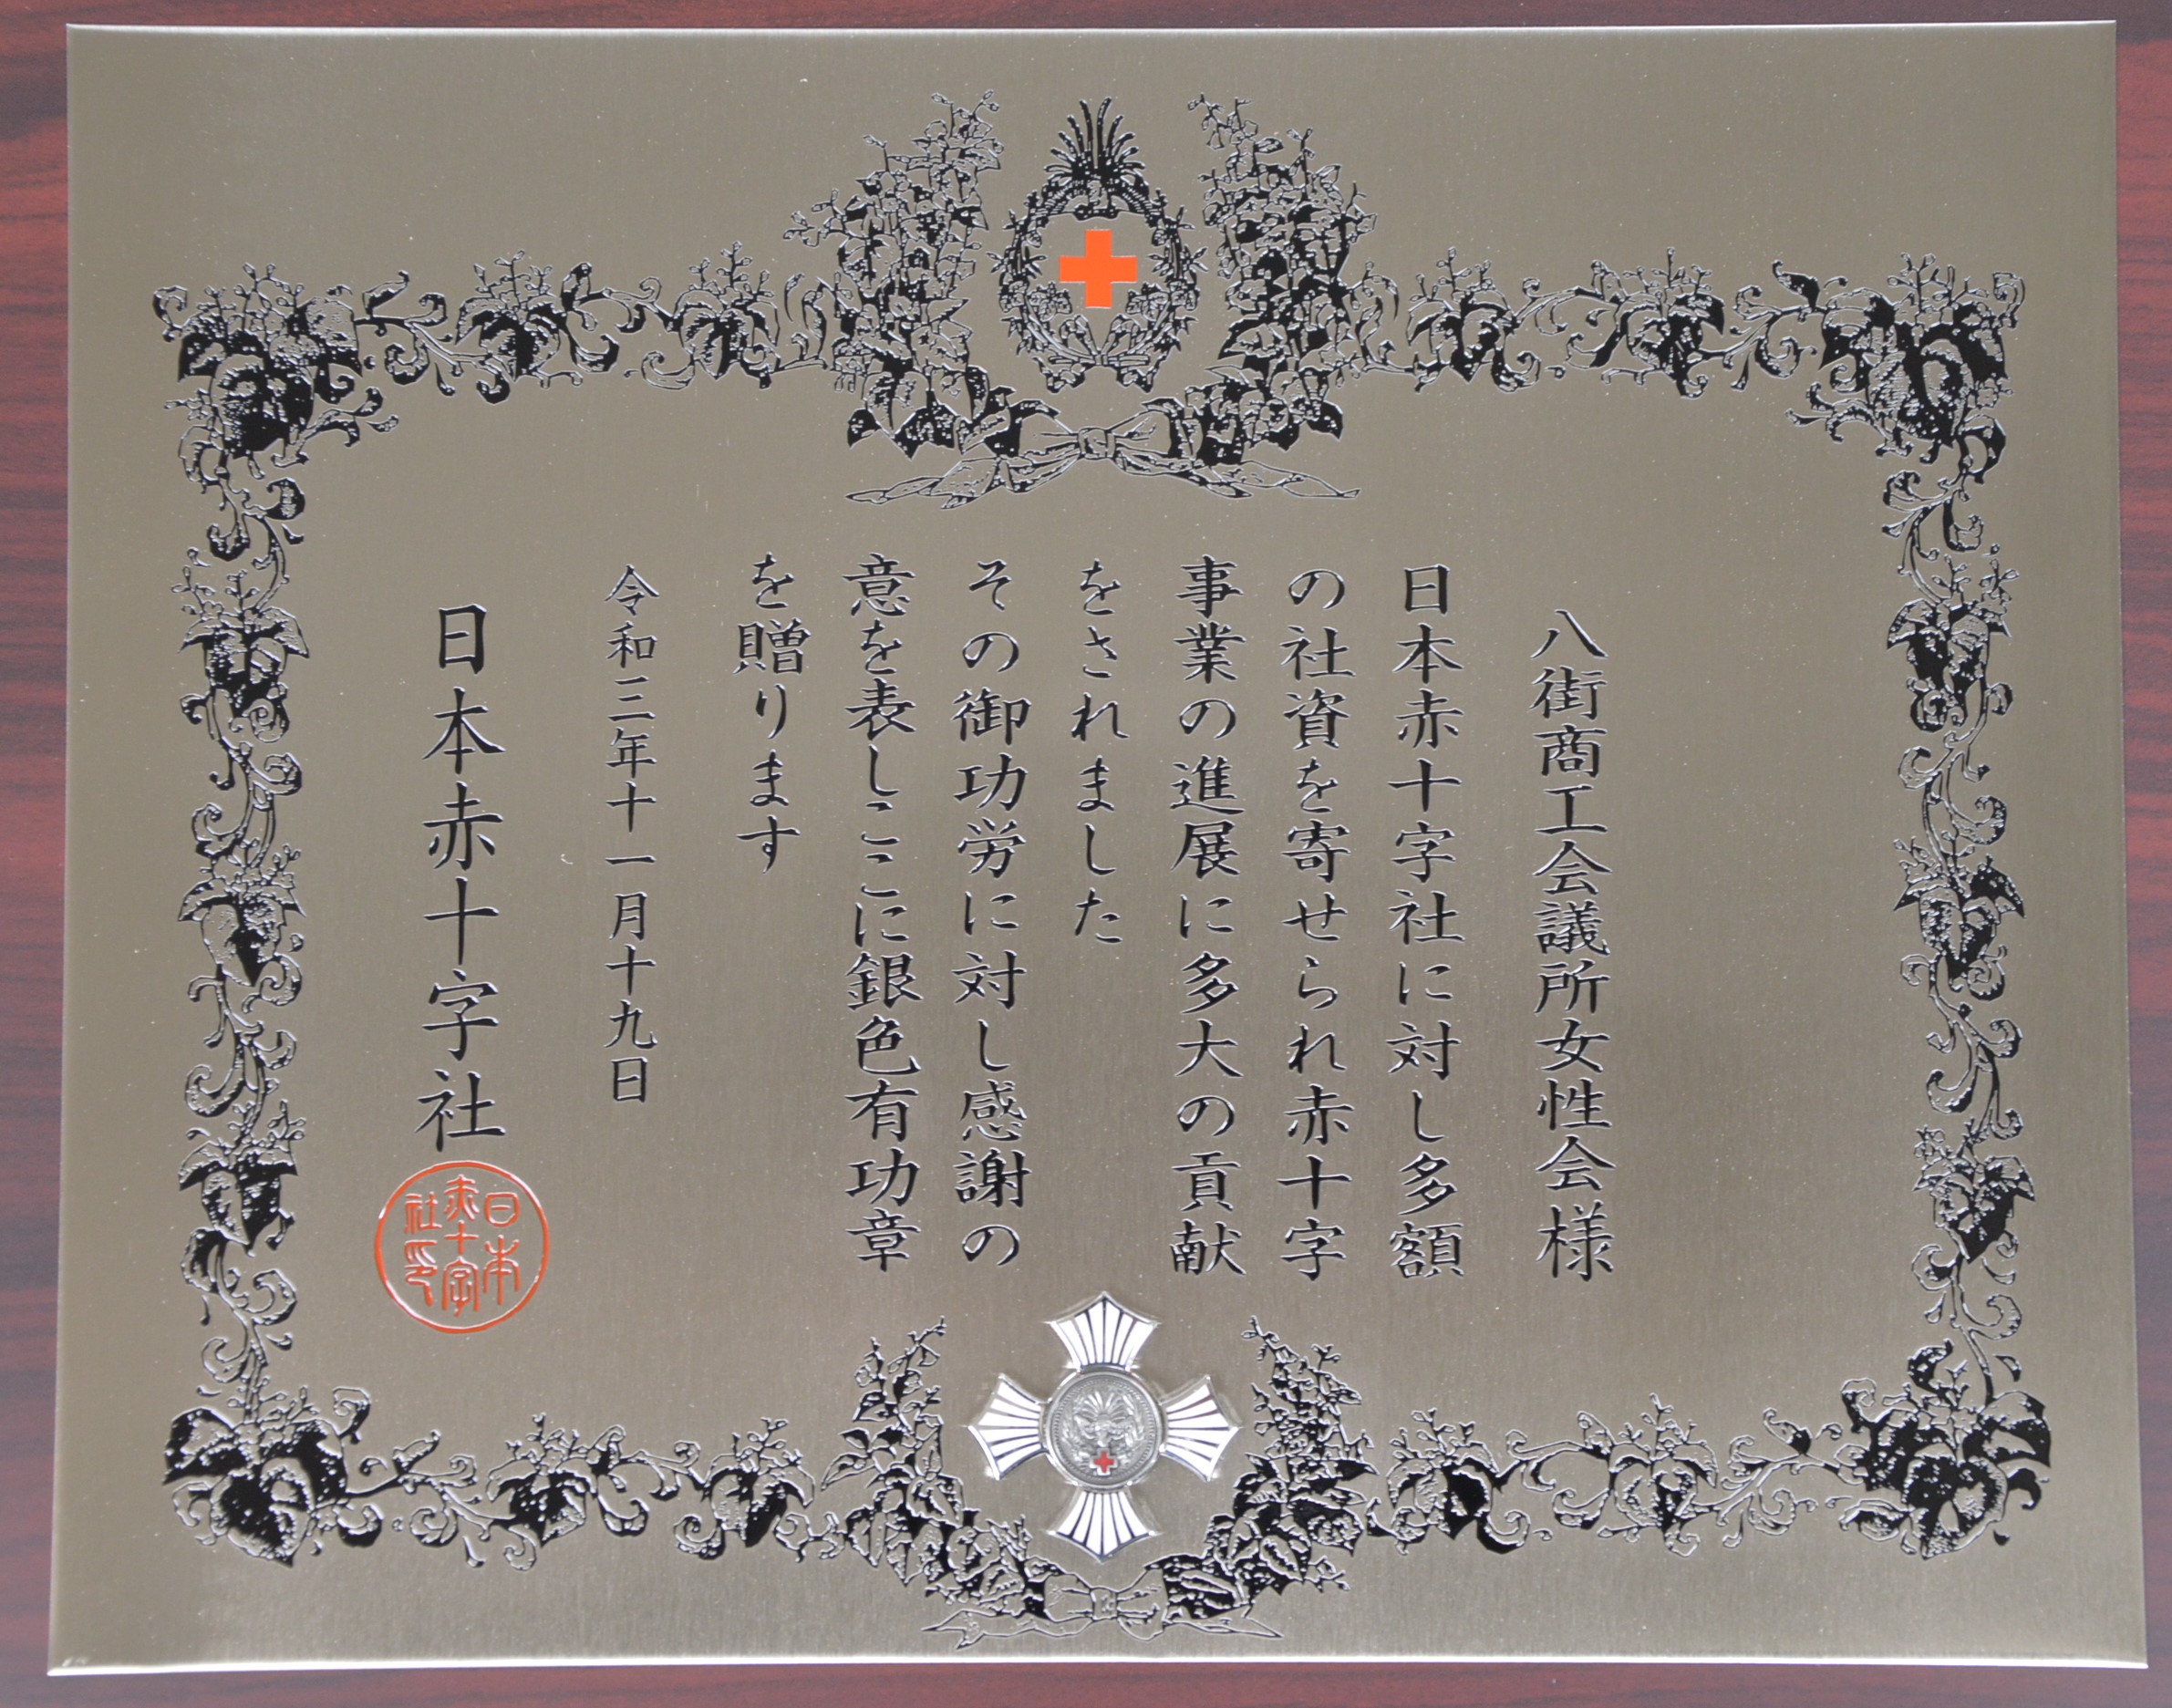 八街商工会議所女性会様
日本赤十字社に対し多額
の社資を寄せられ赤十字
事業の進展に多大の貢献
をされました
その御功労に対し感謝の
意を表しここに銀色有功章
を贈ります
令和三年十一月十九日
日本赤十字社
日本
赤十字
社印